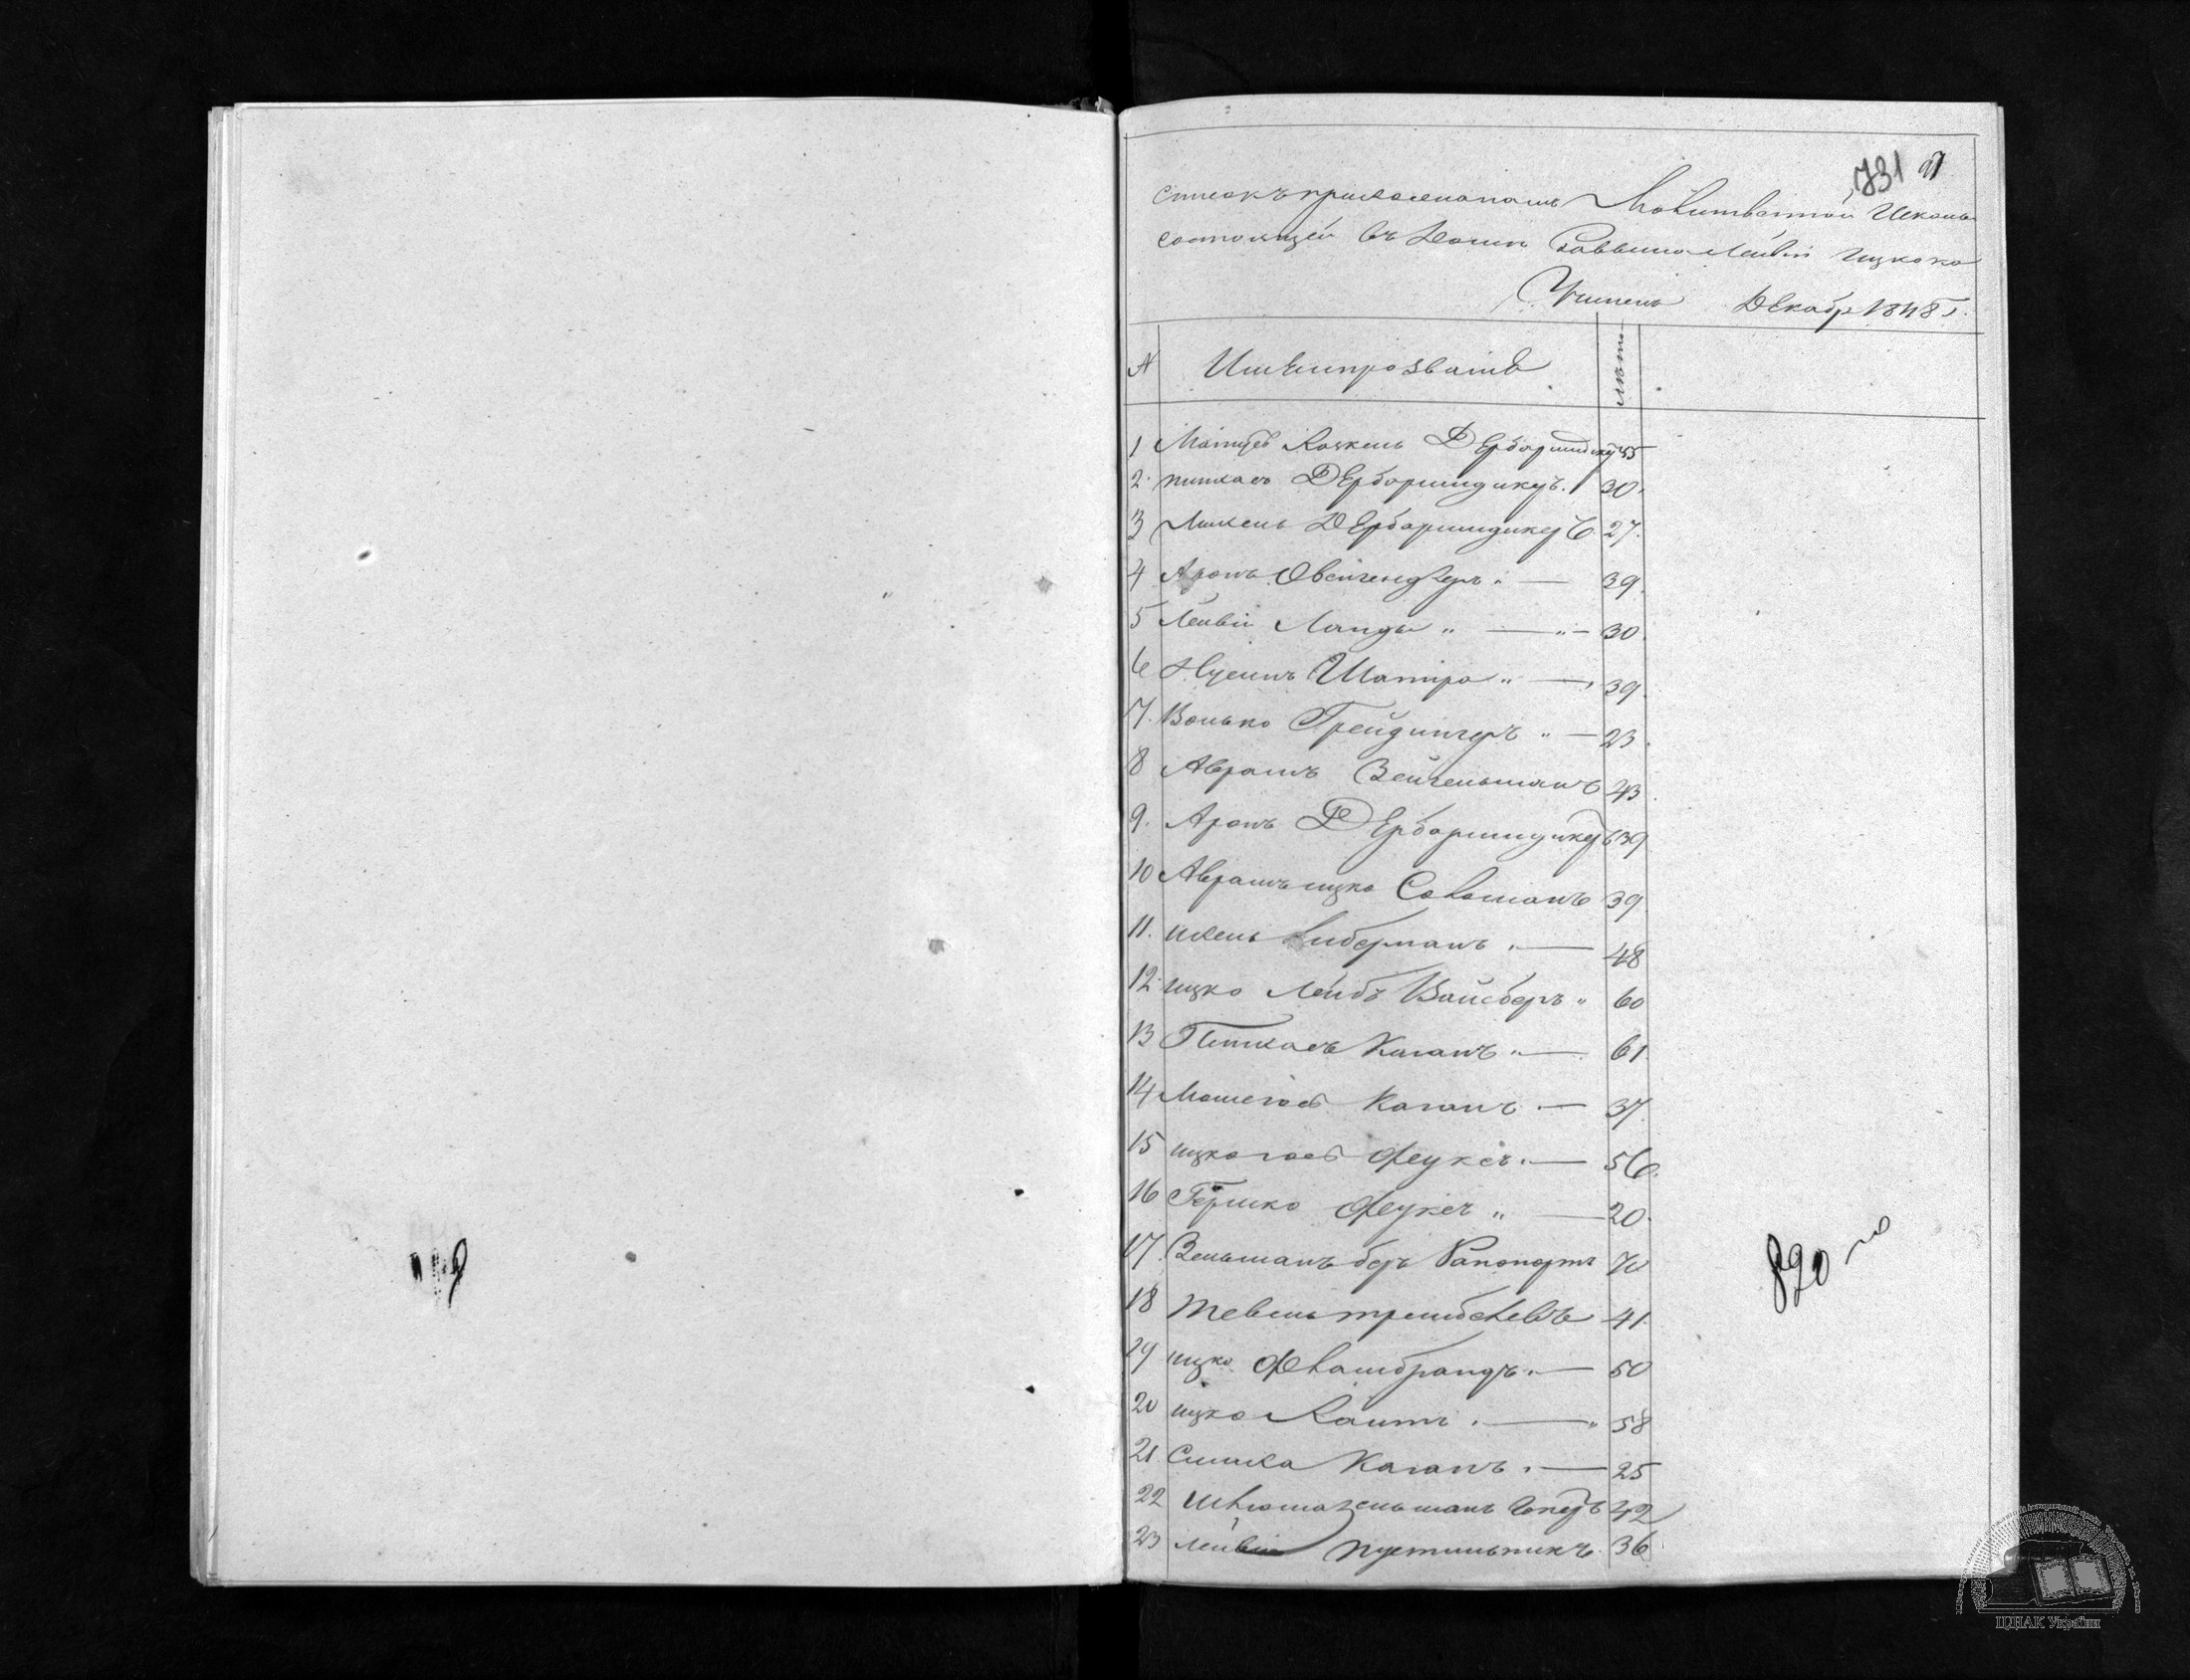 731 27
Списокъ прихожанамъ Молитвенной Школы
состоящей въ Доми Раввина Лейви Ицкока
Декабр 1848 г.
N Имя и прозваніе лѣты
1 Дербаримдикеръ 45
2 пинхасъ Дербаримдикеръ. 30.
3 Михель Дербаримдикеръ 27.
4 Аронъ „ — 39.
5 Лейви Ланда „ — „ — 30.
6 Нусинъ Шапира „ — 39.
7. Волько Грейдингеръ „ — 23.
8 Аврамъ Зейгельманъ 43.
9. Аронъ Дербаримдикеръ 39
10 Аврамъ ицко Соломанъ 39
11. ихель Либерманъ „ — 48
12. ицко Лейбъ Вайсберъ „ 60
13 Пинхасъ Каганъ „ — 61
14 Мошегос Каганъ — 37.
15 ицкогос Фуксъ „ — 56.
16 Гершко Фуксъ „ — 20.
17. Зельманъ беръ Рапопортъ 70
18 Тевель 41.
19 ицко Фламбрандъ „ — 50
20 ицко „ — „ 58
21. Симха Каганъ „ — 25
22 Шлома зельманъ 42
23 Лейви Пустильникъ. 36.
890
ЦДІАК України